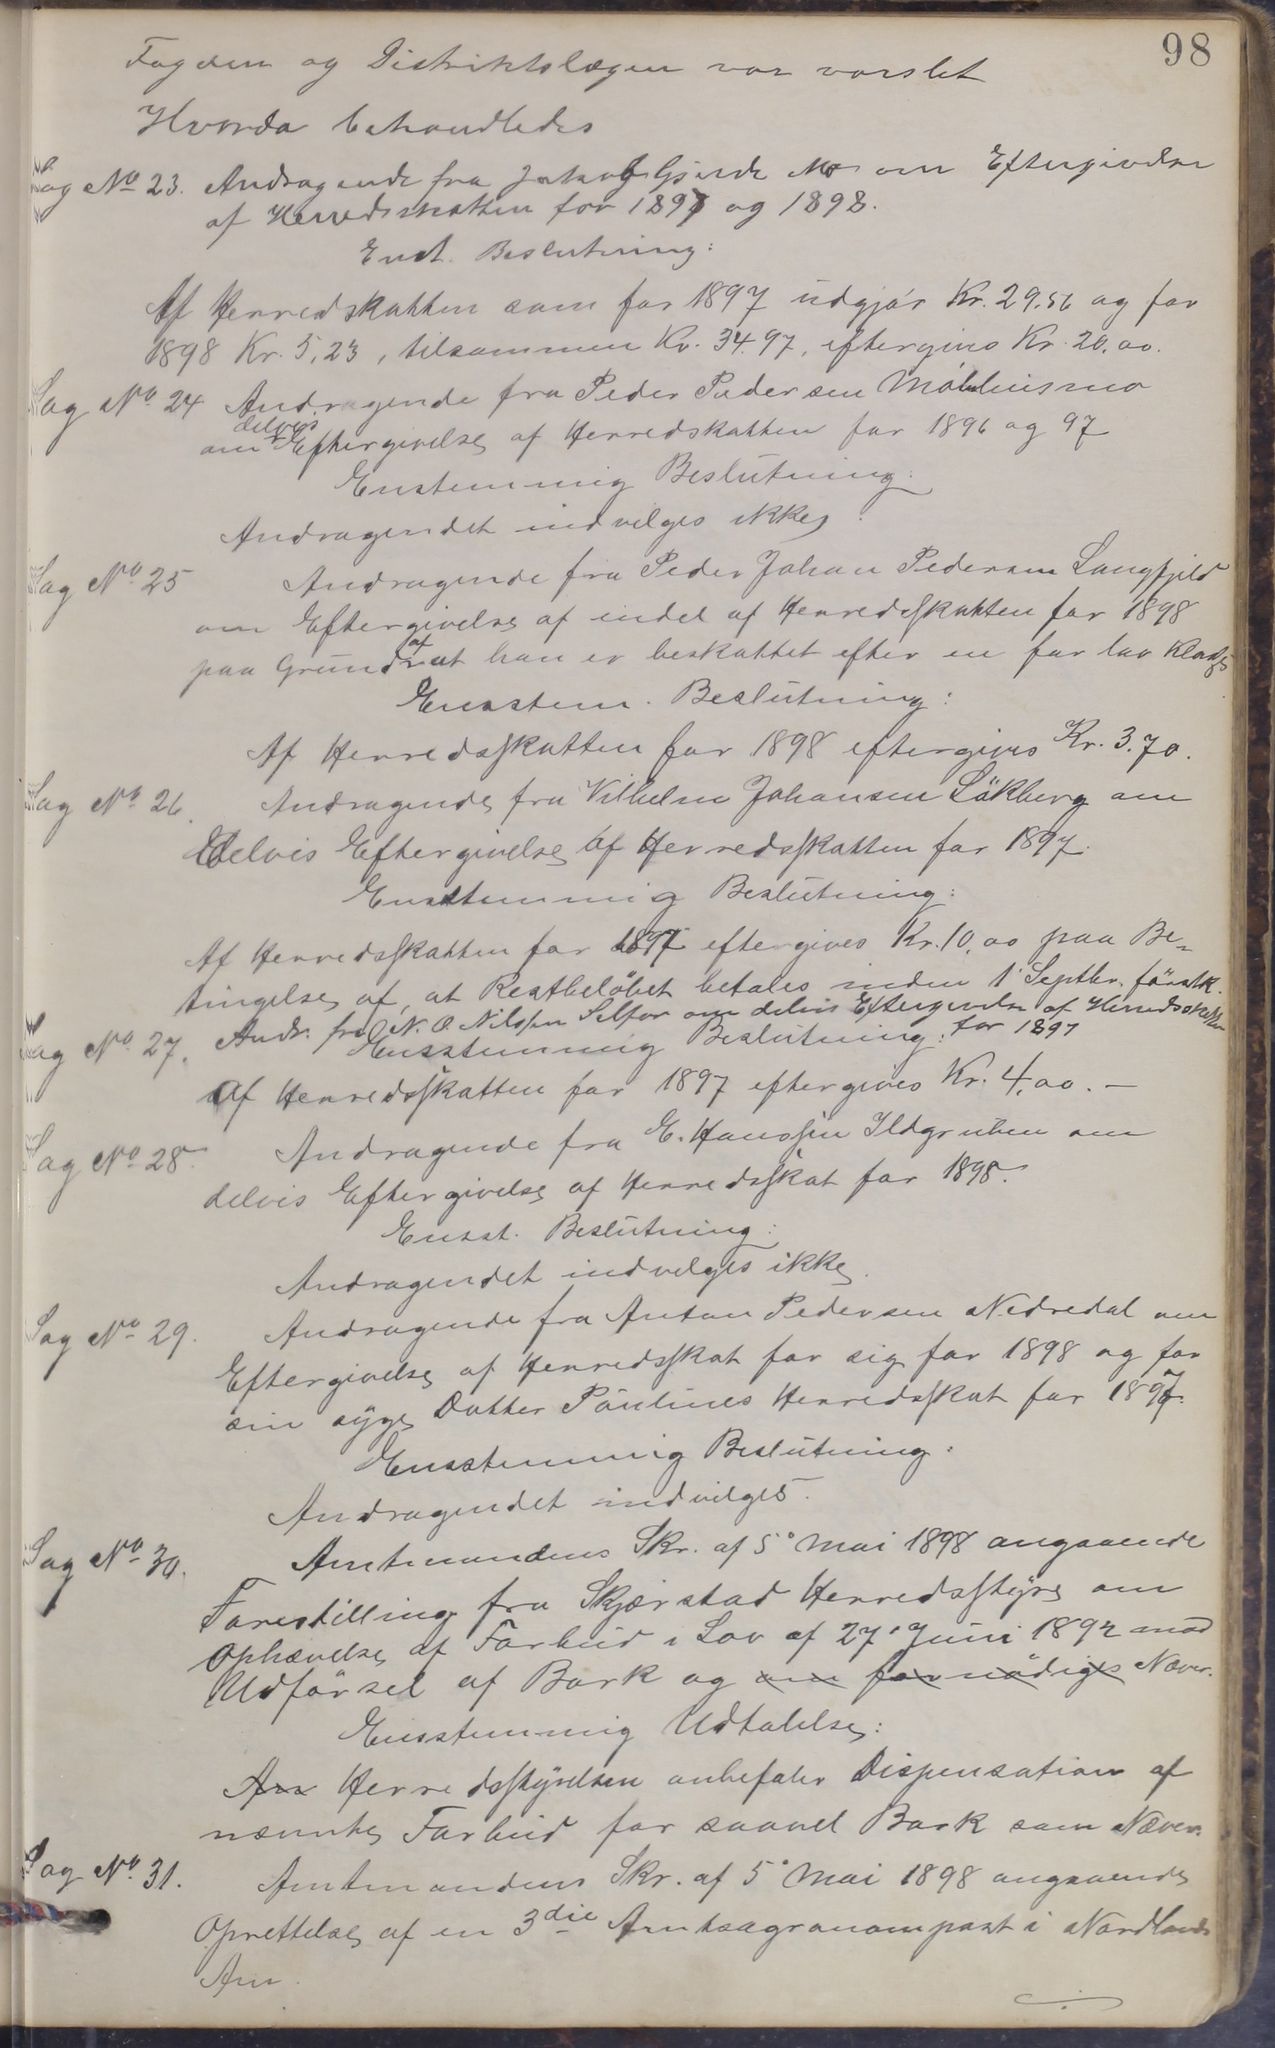 98
Fogden og Distriktslægen var varslet
Hvorda behandledes
Sag No 23. Andragende fra Jakob Gjerde Mo om Eftergivelse
af Herredsskatten for 1897 og 1898.
Enst. Beslutning:
Af Herredskatten som for 1897 udgjør Kr. 29.56 og for
1898 Kr. 5,23, tilsammen Kr. 34.97, eftergives Kr. 20,00.
Sag No 24 Andragende fra Peder Pedersen
delvis
om Eftergivelse af Herredskatten for 1896 og 97
Enstemmig Beslutning:
Andragendet indvilges ikke.
Sag No 25 Andragende fra Peder Johan Pedersen Langfjeld
om Eftergivelse af endel af Herredsskatten for 1898
af
paa Grund at han er beskattet efter en for lav
Ensstem. Beslutning:
Af Herredsskatten for 1898 eftergives Kr. 3.70.
Sag No 26. Andragende fra Vilhelm Johansen om
delvis Eftergivelse af Herredsskatten for 1897.
Ensstemmig Beslutning:
Af Herredsskatten for 1897 eftergives Kr. 10,00 paa Be-
tingelse af, at Restbeløbet betales inden 1' Septbr. førstk.
Sag No 27. Andr. fra N. O. Nilssen Selfor om delvis Eftergivelse af Herredsskatten
for 1897
Ensstemmig Beslutning:
Af Herredsskatten for 1897 eftergives Kr. 4,00. —
Sag No 28. Andragende fra E. Hanssen Ildgruben om
delvis Eftergivelse af Herredsskat for 1898.
Ensst. Beslutning:
Andragendet indvelges ikke.
Sag No 29. Andragende fra Anton Pedersen Nedredal om
Eftergivelse af Herredsskat for sig for 1898 og for
sin syge Datter Paulines Herredsskat for 1897.
Ensstemmig Beslutning:
Andragendet indvilges.
Sag No 30. Amtmandens Skr. af 5' Mai 1898 angaaende
Forestilling fra Skjerstad Herredsstyre om
Ophævelse af Forbud i Lov af 27' Juni 1892 mod
Udførsel af Bark og om fornødige Næver.
Ensstemmig Udtalelse:
Am Herredsstyrelsen anbefaler Dispensation af
nævnte Forbud for saavel Bark som Næver.
Sag No 31. Amtmandens Skr. af 5' Mai 1898 angaaende
Oprettelse af en 3die Amtsagronompost i Nordlands
Am.